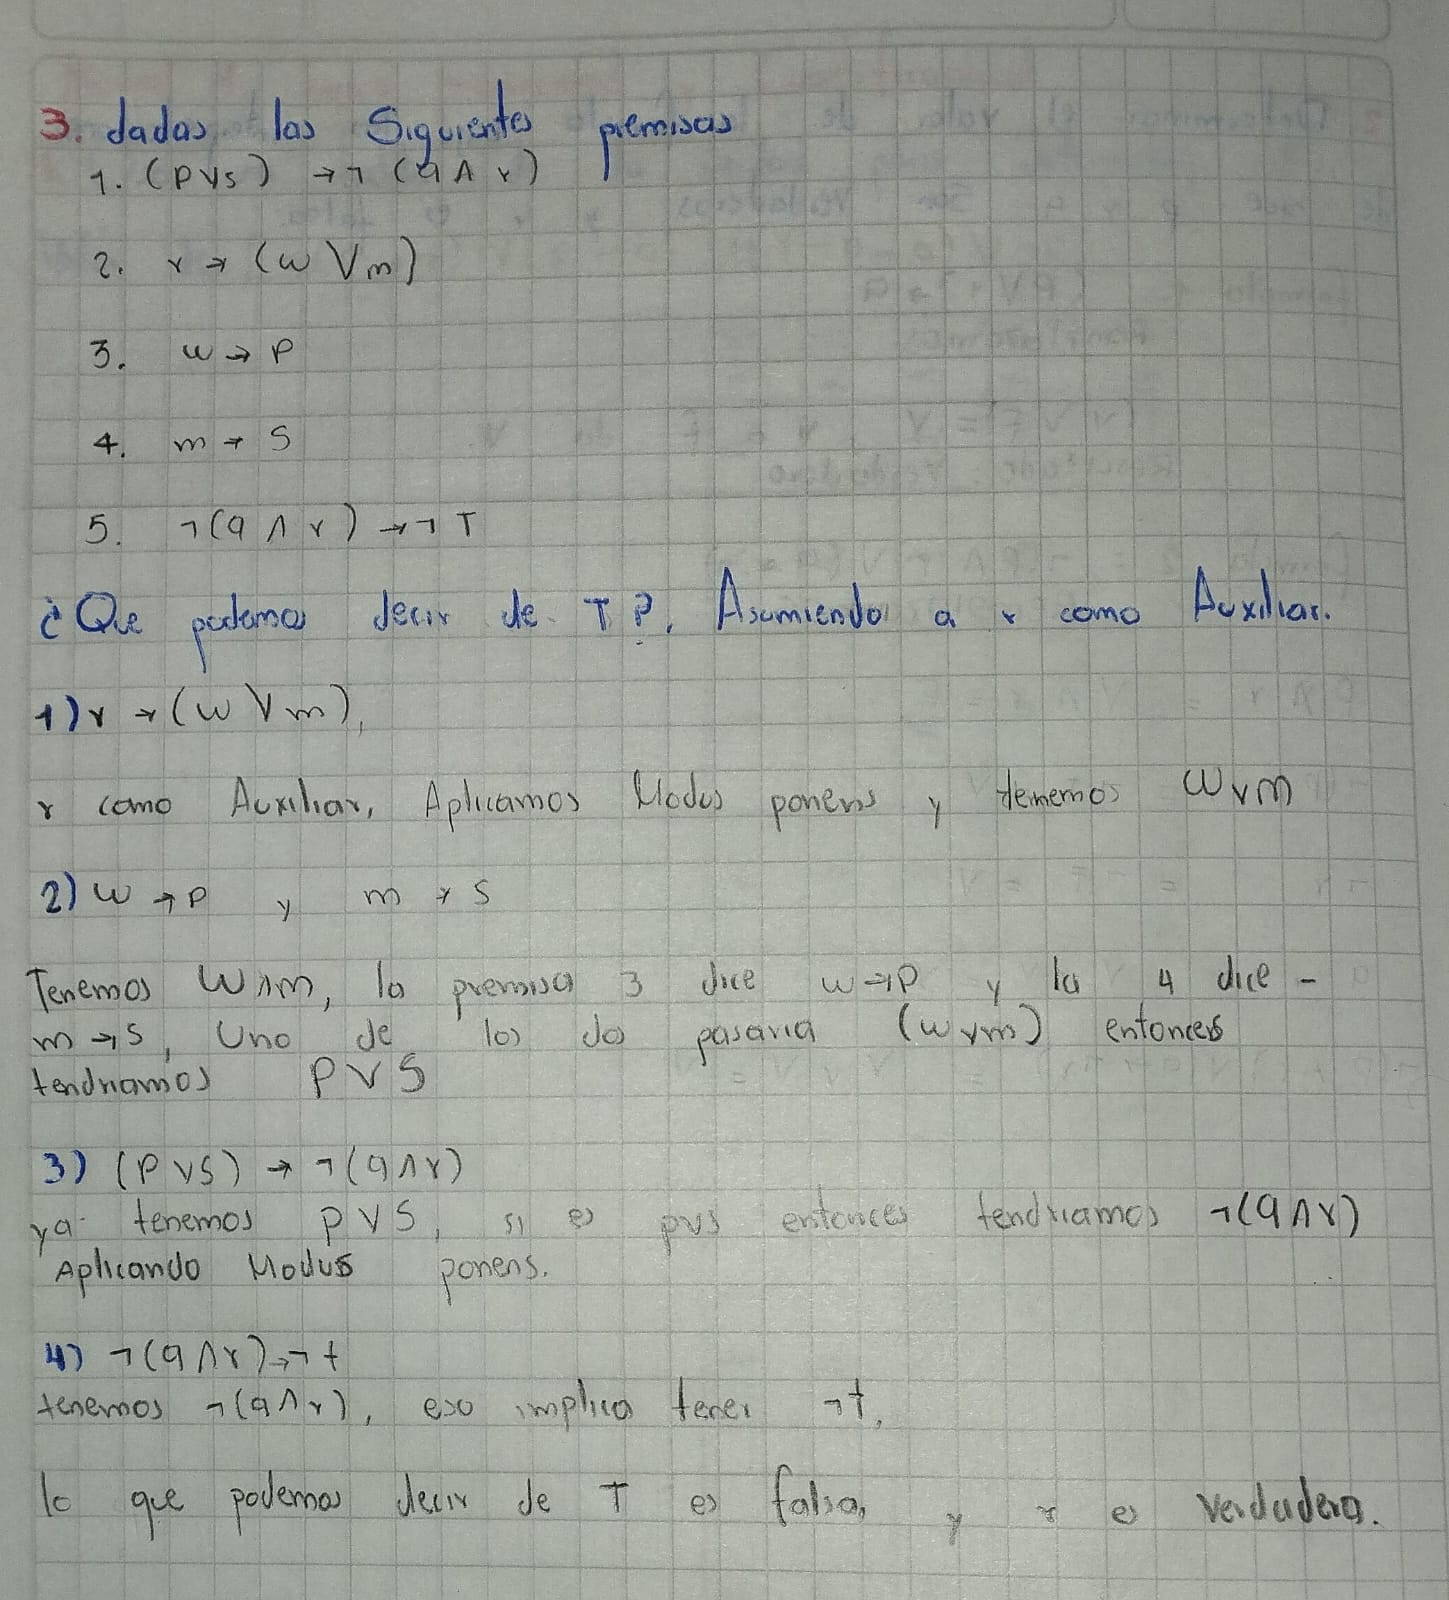 3. dadas las Siguientes premisas
1. (p∨s) → ¬ (q ∧ r)
2. r → (w ∨ m)
3. w → p
4. m → s
5. ¬(q ∧ r) → ¬ T
¿Que podemos decir de T?, Asumiendo a r como Auxiliar.
1) r → (w ∨ m),
r como Auxiliar, Aplicamos Modus ponens y tenemos w∨m
2) w → p y m → s
Tenemos w∧m, la premisa 3 dice w→p y la 4 dice -
m→s, Uno de los dos pasaria (w∨m) entonces
tendriamos p∨s
3) (p∨s) → ¬(q∧r)
ya tenemos p∨s, si es p∨s entonces tendriamos ¬(q∧r)
Aplicando Modus ponens.
4) ¬(q∧r)→¬t
tenemos ¬(q∧r), eso implica tener ¬t,
lo que podemos decir de T es falsa, y r es verdadera.